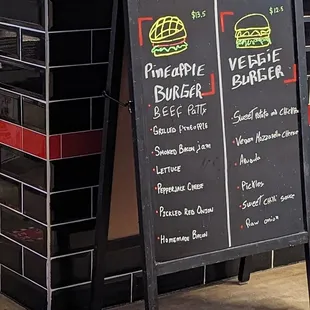 $13.5
Pineapple
Burger
Beef Patty
Grilled Pineapple
Smoked Bacon Jam
Lettuce
Pepperjack Cheese
Pickled Red Onion
Homemade Bacon
$12.5
Veggie
Burger
Sweet Potato and Chickpea
Vegan Mozzarella Cheese
Avocado
Pickles
Sweet Chili Sauce
Raw Onion